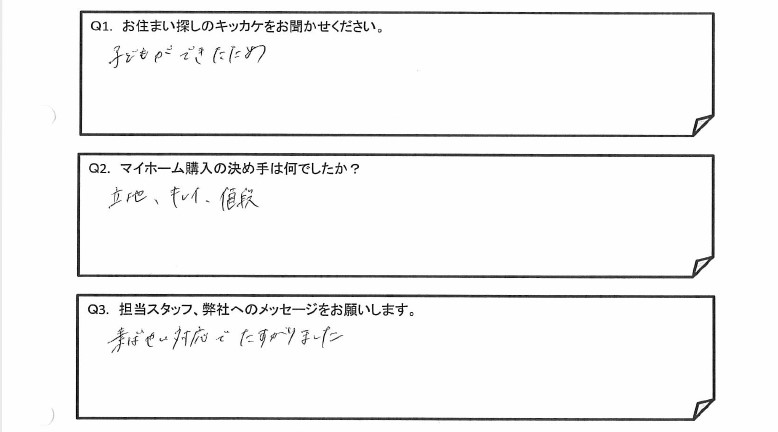 Q1. お住まい探しのキッカケをお聞かせください。
子どもができたため
Q2. マイホーム購入の決め手は何でしたか？
立地、キレイ、値段
Q3. 担当スタッフ、弊社へのメッセージをお願いします。
素ばやい対応でたすかりました